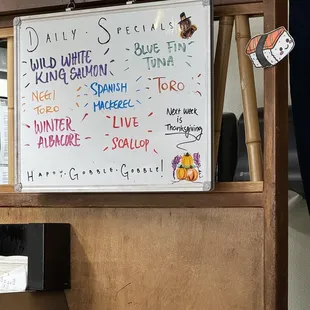 Daily Specials
WILD WHITE
KING SALMON
BLUE FIN
TUNA
NEGI
TORO
SPANISH
MACKEREL
TORO
WINTER
ALBACORE
LIVE
SCALLOP
Next week
is
Thanksgiving
HAPPY·GOBBLE·GOBBLE!